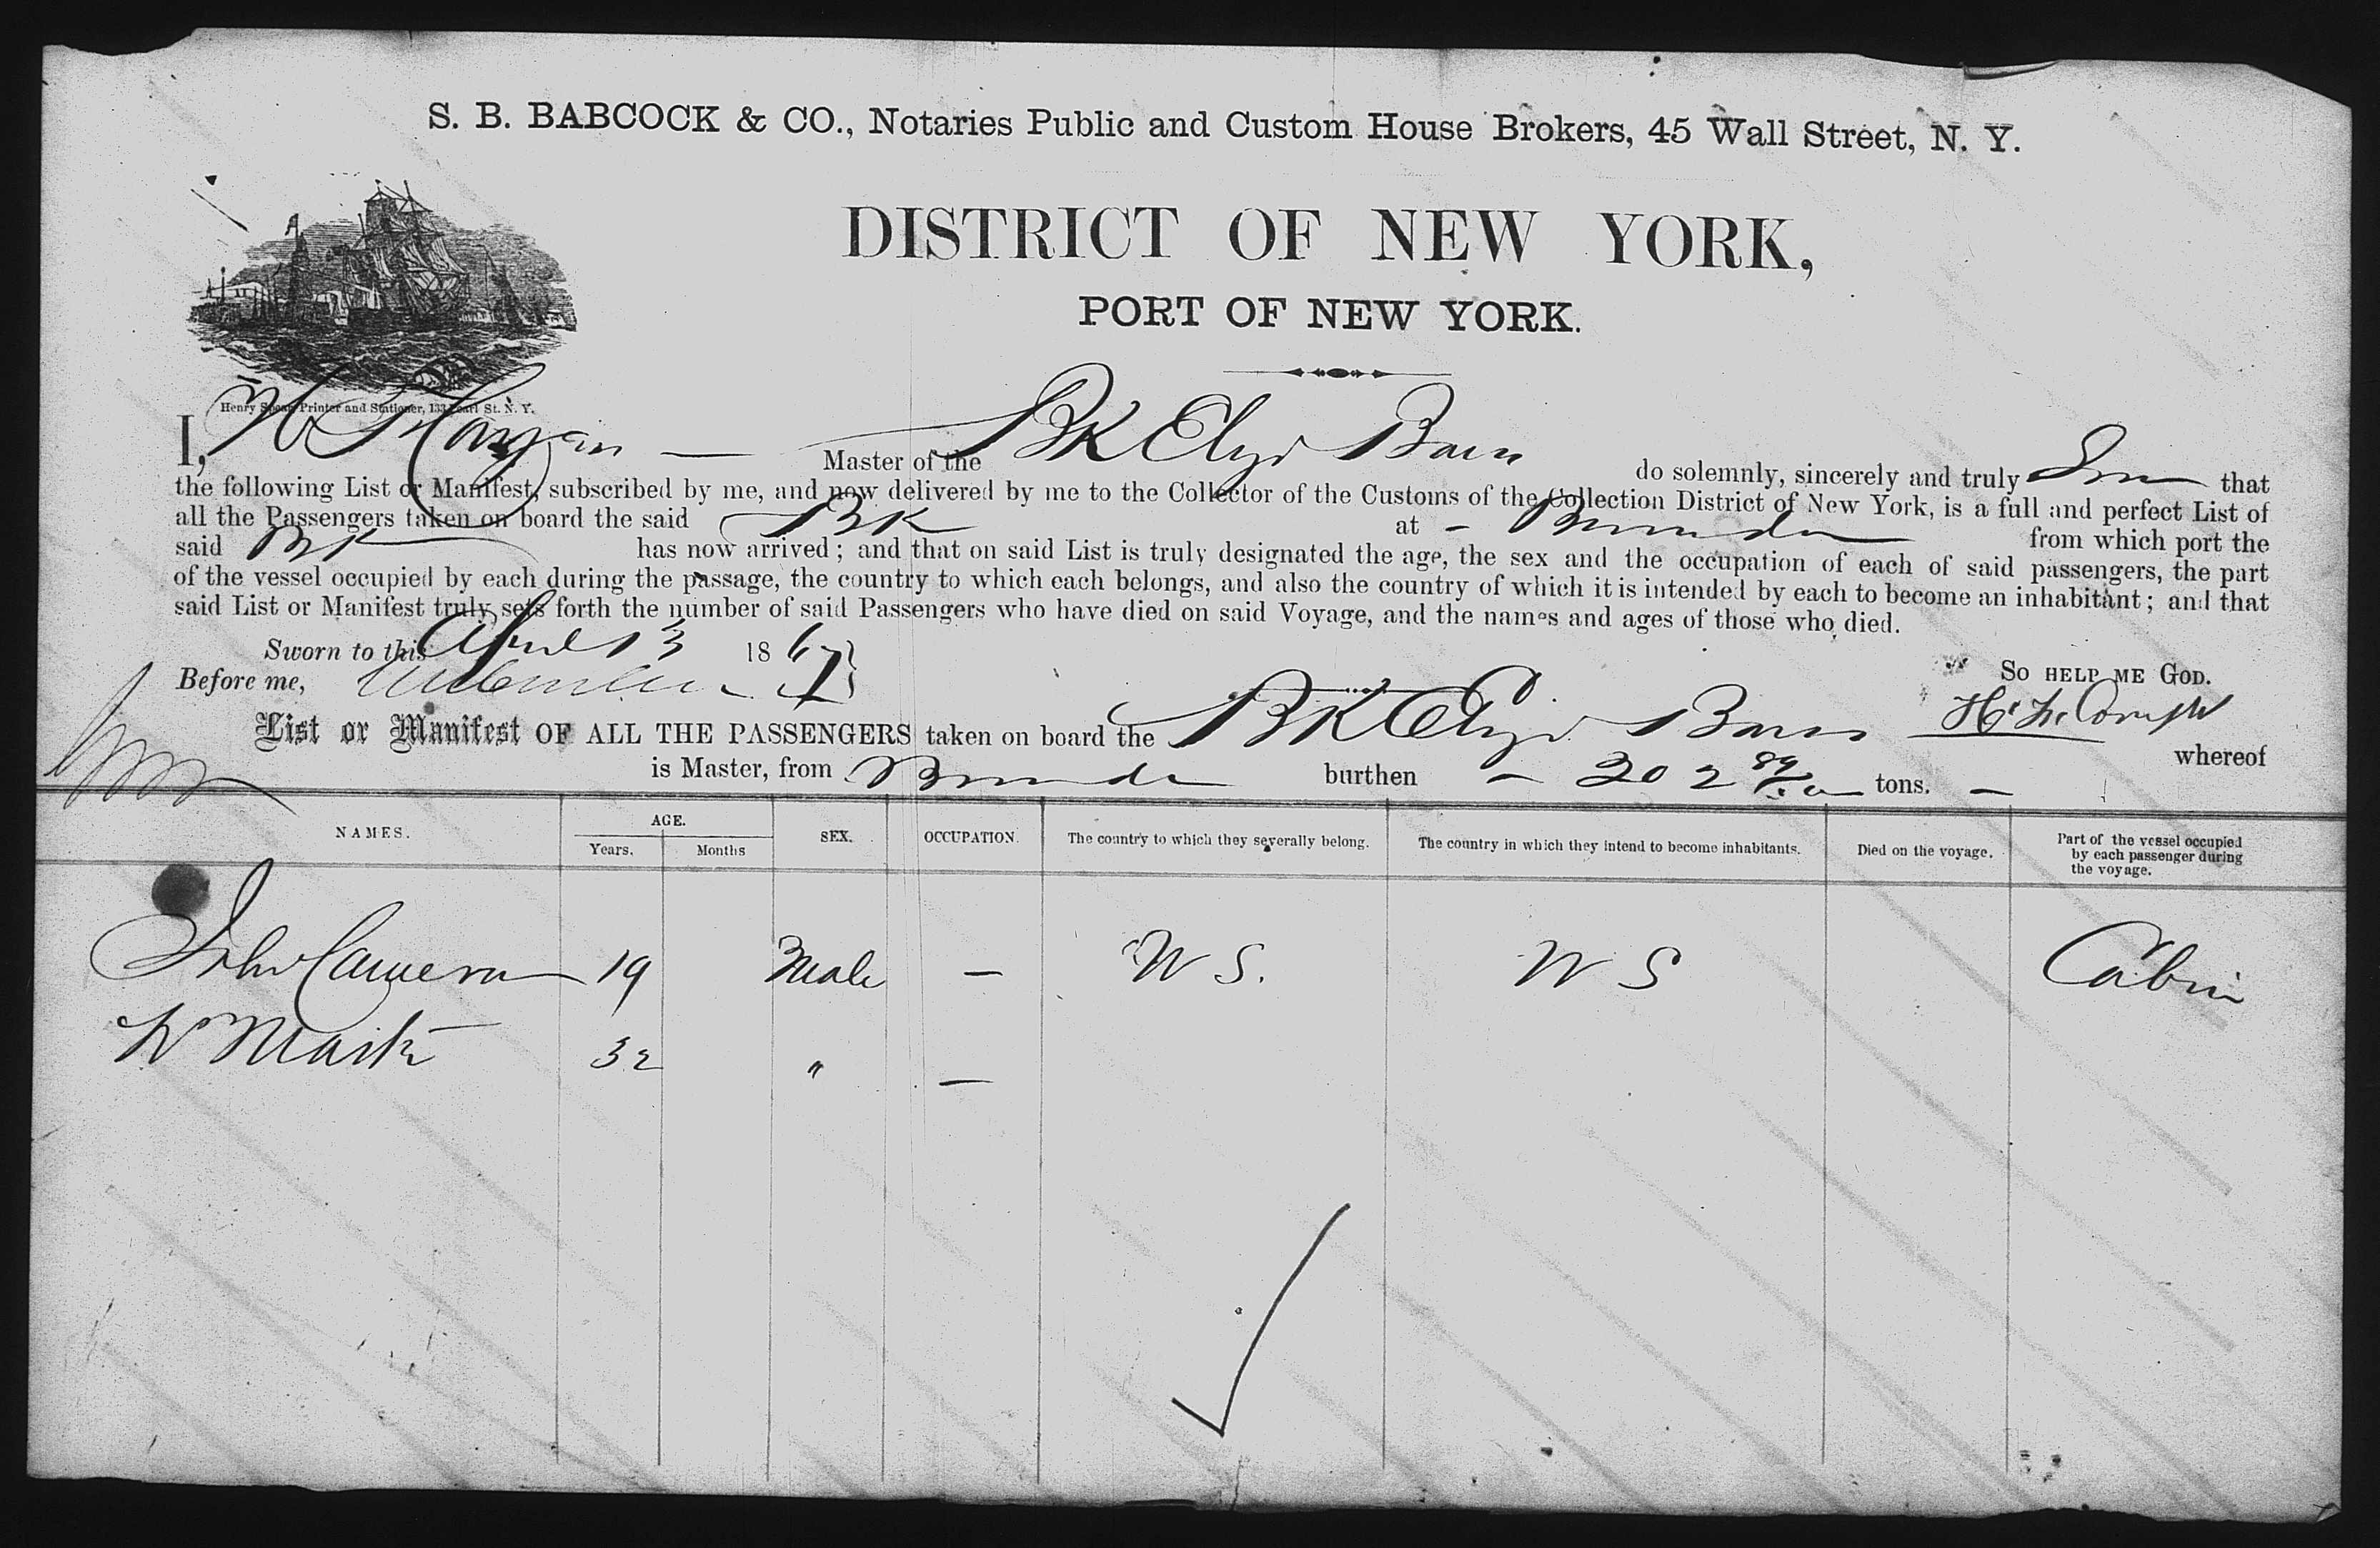 S. B. BABCOCK & CO., Notaries Public and Custom House Brokers, 45 Wall Street, N. Y.
DISTRICT OF NEW YORK,
PORT OF NEW YORK.
Henry Spear, Printer and Stationer, 133 Pearl St. N. Y.
I, Master of the BK do solemnly, sincerely and truly that
the following List or Manifest, subscribed by me, and now delivered by me to the Collector of the Customs of the Collection District of New York, is a full and perfect List of
all the Passengers taken on board the said BK at from which port the
said BK has now arrived; and that on said List is truly designated the age, the sex and the occupation of each of said passengers, the part
of the vessel occupied by each during the passage, the country to which each belongs, and also the country of which it is intended by each to become an inhabitant; and that
said List or Manifest truly sets forth the number of said Passengers who have died on said Voyage, and the names and ages of those who died.
Sworn to this April 13 1867
Before me,
SO HELP ME GOD.
List or Manifest OF ALL THE PASSENGERS taken on board the BK whereof
is Master, from burthen 302 tons.
NAMES. AGE. Years. Months SEX. OCCUPATION. The country to which they severally belong. The country in which they intend to become inhabitants. Died on the voyage. Part of the vessel occupied by each passenger during the voyage.
John Cameron 19 Male — Cabin
32 " —